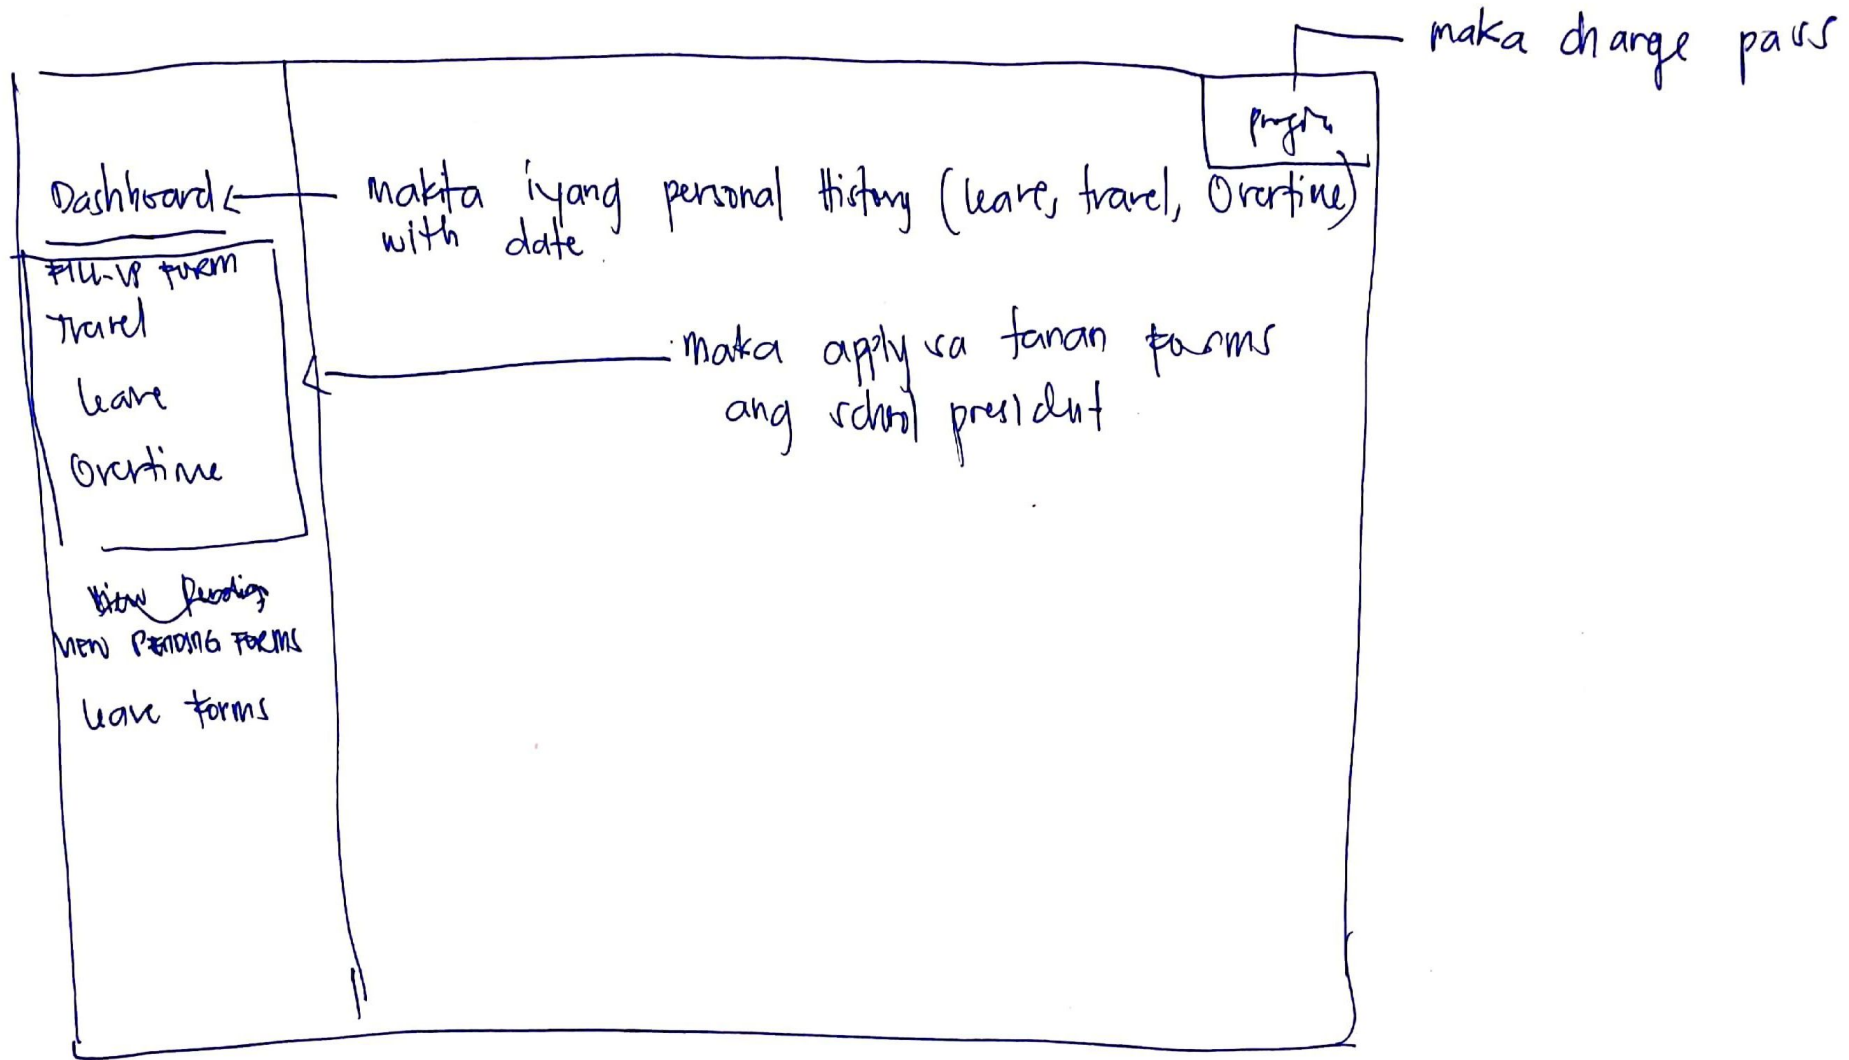 maka change pass
Dashboard
makita iyang personal History (leave, travel, Overtime)
with date
FILL-UP FORM
Travel
leave
Overtime
maka apply sa tanan forms
ang school president
View Pending
VIEW PENDING FORMS
leave forms